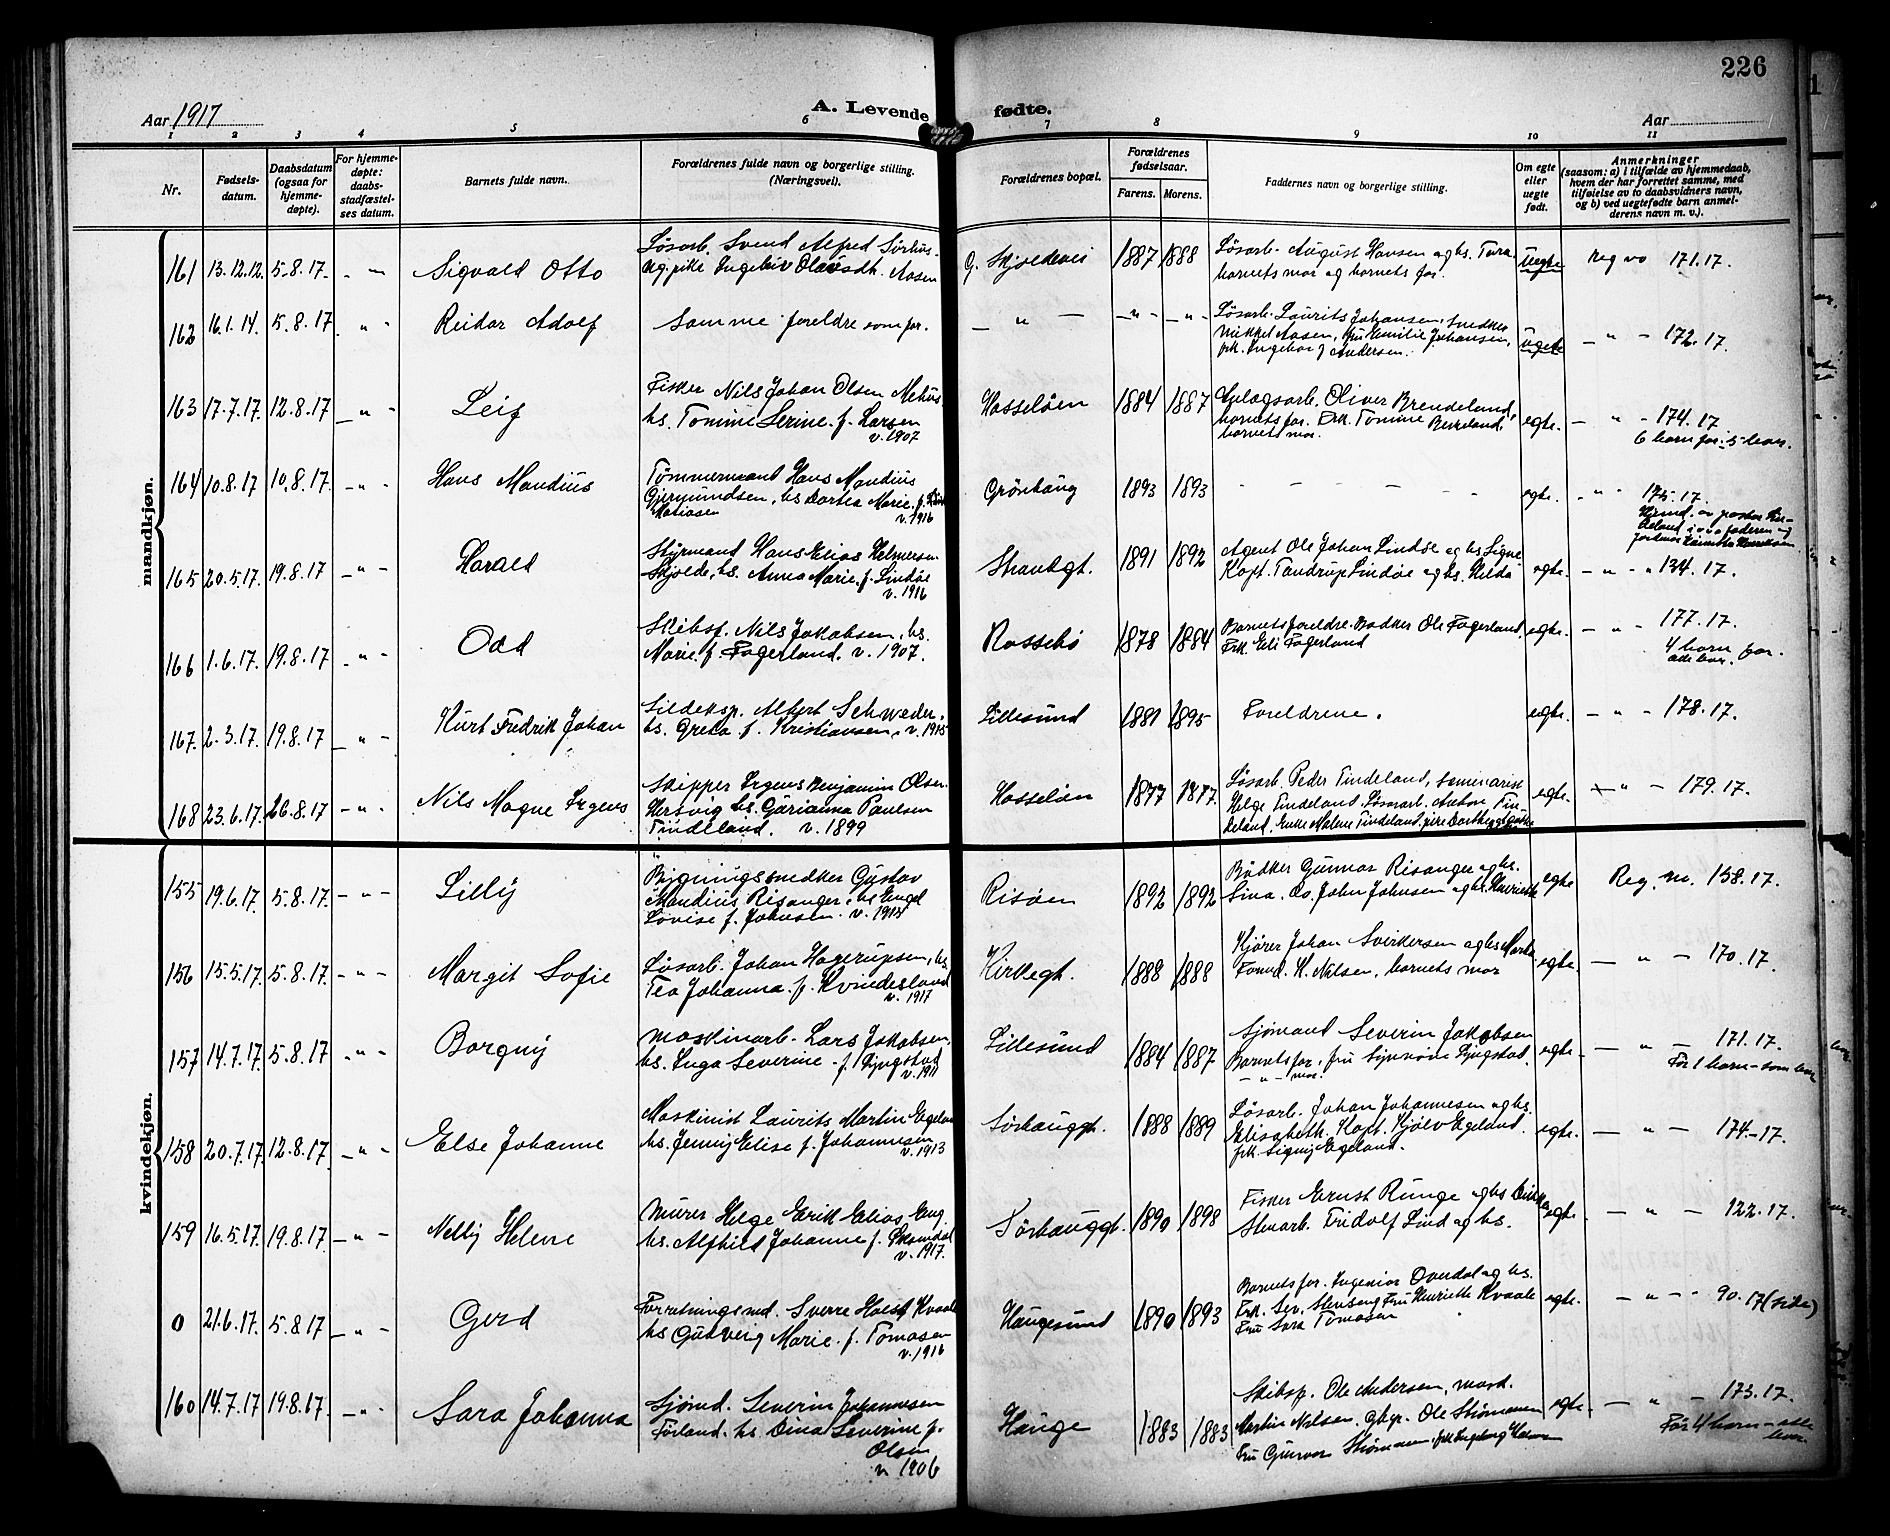 226
Aar 1917
A. Levende fødte.
Aar
1 2 3 4 5 6 7 8 9 10 11
Nr.
Fødsels-datum.
Daabsdatum (ogsaa for hjemme-døpte).
For hjemme-døpte: daabs-stadfæstel-ses datum.
Barnets fulde navn.
Forældrenes fulde navn og borgerlige stilling. (Næringsvei).
Forældrenes bopæl.
Forældrenes fødselsaar.
Farens. Morens.
Faddernes navn og borgerlige stilling.
Om egte eller uegte født.
Anmerkninger
(saasom: a) i tilfælde av hjemmedaab, hvem der har forrettet samme, med tilføielse av to daabsvidners navn, og b) ved uegtefødte barn anmel-derens navn m. v.).
mandkjøn.
161 13.12.12. 5.8.17. - " - Sigvald Otto
Løsarb. Svend Alfred Sørhus.
ug. pike Ingebriv Olavsdtr. Aasen
G. Skjoldevei 1887 1888
Løsarb. August Hansen og hs. Tara
barnets mor og barnets far.
Uegte Reg no 171.17.
162 16.1.14. 5.8.17 " - Reidar Adolf
Samme foreldre som for.
- " - - " - - " -
Løsarb. Laurits Johansen, Snedker
Mikkel Aasen, fru Emilie Johansen,
frk. Ingebor f Andersen.
Uegte - " - 172.17.
163 17.7.17. 12.8.17 - " - Leif
Fisker Nils Johan Olsen Mehus
hs. Tomine Serine f. Larsen
v. 1907
Hasseløen 1884 1887
Oplagsarb. Oliver Brendeland,
barnets far. Frk. Tomine
barnets mor.
egte. - " - 174.17
6 barn før: 5 lever.
164 10.8.17 10.8.17. - " - Hans Mandius
Tømmermand Hans Mandius
Gjermundsen, hs Dortea Marie f.
Matiasen
v. 1916
Grönhaug 1893 1893 - - - - -
egte. - " - 175.17.
Hjemd. av pastor
165 20.5.17. 19.8.17 - " - Harald
Styrmand Hans Elias Helmersen
Skjolde, hs. Anna Marie f. Lindøe
v. 1916
Strandgt. 1891 1892
Agent Ole Johan Lindøe og hs Signe
Kapt. Tandrup Lindøe og hs. Hilda
egte. - " - 134.17.
166 1.6.17. 19.8.17 - " - Odd
Skibsf. Nils Jakobsen, hs.
Marie f. Fagerland. v. 1907.
Rossebö 1878 1884
Barnets foreldre. Bødker Ole Fagerland.
Frk. Eli Fagerland
egte. - " - 177.17.
4 barn før.
alle lever.
167. 2.3.17. 19.8.17 - " - Kurt Fredrik Johan
Sildeksp. Albert Schwæder,
hs. Greta f. Kristiansen, v. 1915
Lillesund 1881 1895 Foreldrene.
egte. - " - 178.17.
168 23.6.17. 26.8.17 - " - Nils Magne Irgens
Skipper Irgens Benjamin Olsen
Hersvig hs. Garianna Paulsen
Tindeland. v. 1899
Hasseløen 1877 1877.
Løsarb. Peder Tindeland, seminarist
Helge Tindeland, Løsarb. Anton Tin-
deland. Enke Malene Tindeland,
egte. - " - 179.17.
kvindekjøn.
155 19.6.17. 5.8.17. - " - Lilly
Bygningssnedker Gustav
Mandius Risanger, hs Engel
Lovise f. Johnsen. v. 1914
Risøen 1892 1892
Bødker Gunnar Risanger og hs.
Lina. Do. John Johnsen og hs. Henriette
egte Reg. no. 158.17.
156 15.5.17. 5.8.17. - " - Margit Sofie
Løsarb. Johan Hagerupsen, hs.
Tea Johanna f. Kvindesland
v. 1917
Kirkegt. 1888 1888
Kjører Johan Sverkersen og hs Marta
Formd. H. Nilsen, barnets mor
egte. - " - 170.17.
157 14.7.17. 5.8.17 - " - Borgny
Maskinarb. Lars Jakobsen,
hs. Inga Severine f. Lyngstad
v. 1911
Lillesund 1884 1887
Sjømand Severin Jakobsen
Barnets far, fru Synnøve Lyngstad
- " - mor.
egte - " - 171.17.
Før 1 barn - som lever
158 20.7.17. 12.8.17. - " - Else Johanne
Maskinist Laurits Martin Egeland
hs. Jenny Elise f. Johannesen
v. 1913
Sørhauggt. 1888 1889
Løsarb. Johan Johannesen og hs.
Elisabeth. Kapt. Kjølv Egeland.
frk. Signy Egeland.
egte. - " - 174.17.
159 16.5.17. 19.8.17. - " - Nelly Helene
Murer Helge Erik Elias Eng
hs. Alfhild Johanne f.
v. 1917.
Sørhauggt. 1890 1898
Fisker Ernst Runge og hs
Stuarb. Fridolf Lind og hs.
egte. - " - 122.17.
0 21.6.17. 5.8.17 - " - Gerd
Forretningsmd. Sverre Holst Kvaale
hs Gudveig Marie f. Tomasen
v. 1916
Haugesund 1890 1893
Barnets far. Ingeniør Overdal og hs.
Frk. Sev. Stenseng Fru Henriette Kvaale
Fru Sara Tomasen
egte. - " - 90.17 (side)
160 14.7.17 19.8.17. - " - Sara Johanna
Sjømd. Severin Johannesen
Førland. hs. Dina Severine f.
Olsen
v. 1906
Hauge 1883 1883
Skibsf. Ole Andersen, mask.
Martin Nilsen, Ole Strömmen
Fru Gunvor Strömmen, frk Ingeborg
egte. - " - 173.17.
Før 4 barn - alle
lever.